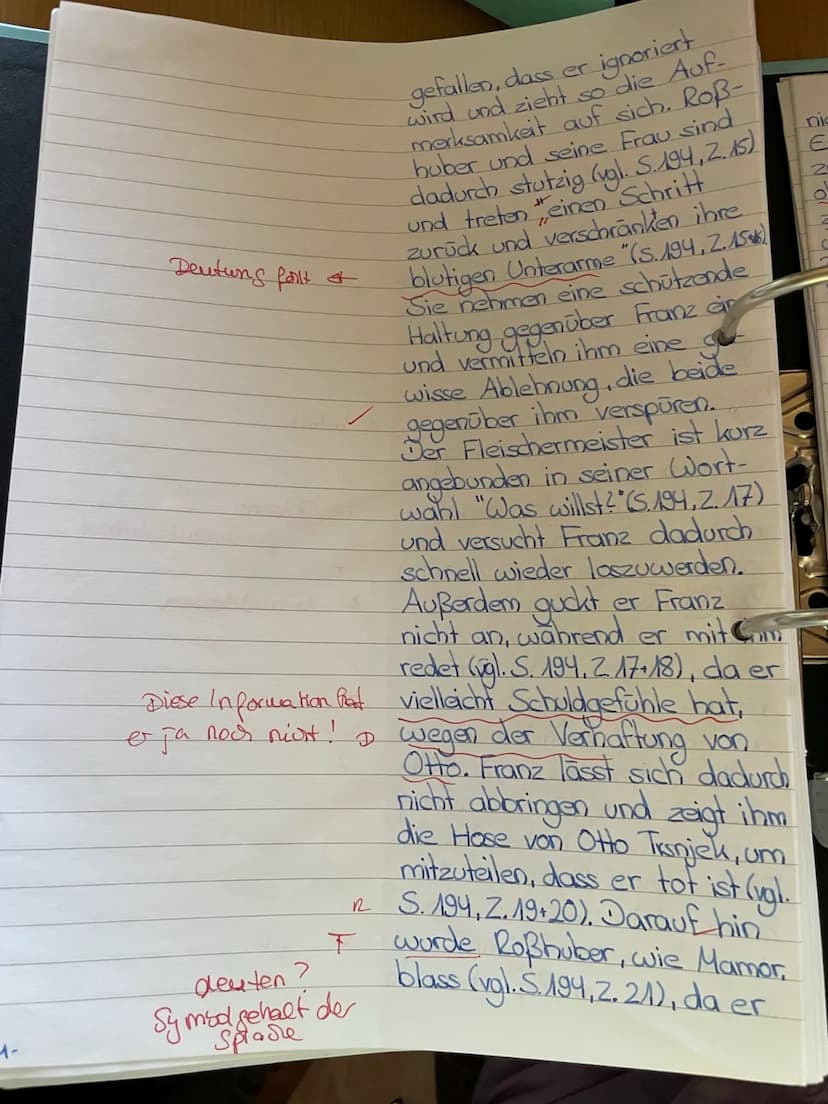 gefallen, dass er ignoriert
wird und zieht so die Auf-
merksamkeit auf sich. Roß-
huber und seine Frau sind
dadurch stutzig (vgl. S. 194, Z. 15)
und treten "einen Schritt
zurück und verschränkten ihre
Deutung fehlt
blutigen Unterarme" (S. 194, Z. 15
Sie nehmen eine schützende
Haltung gegenüber Franz ein
und vermitteln ihm eine ge-
wisse Ablehnung, die beide
✓ gegenüber ihm verspüren.
Der Fleischermeister ist kurz
angebunden in seiner Wort-
wahl "Was willst?" (S. 194, Z. 17)
und versucht Franz dadurch
schnell wieder loszuwerden.
Außerdem guckt er Franz
nicht an, während er mit ihm
redet (vgl. S. 194, Z 17+18), da er
Diese Information hat
er ja noch nicht!
vielleicht Schuldgefühle hat,
wegen der Verhaftung von
Otto. Franz lässt sich dadurch
nicht abbringen und zeigt ihm
die Hose von Otto Trsnjek, um
mitzuteilen, dass er tot ist (vgl.
R S. 194, Z. 19+20). Darauf hin
T wurde Roßhuber, wie Mamor,
deuten?
Symbolgehalt der
Sprache
blass (vgl. S. 194, Z. 21), da er